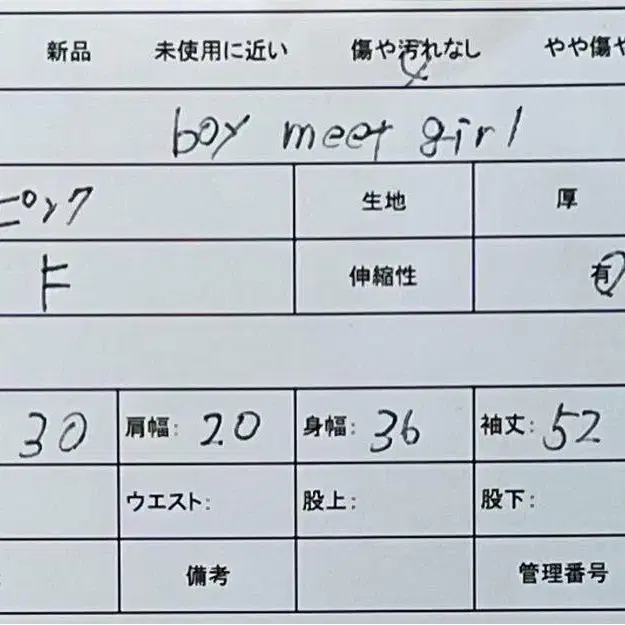 新品 未使用に近い 傷や汚れなし やや傷や
boy meet girl
ピンク 生地 厚
F 伸縮性 有
30 肩幅: 20 身幅: 36 袖丈: 52
ウエスト: 股上: 股下:
備考 管理番号